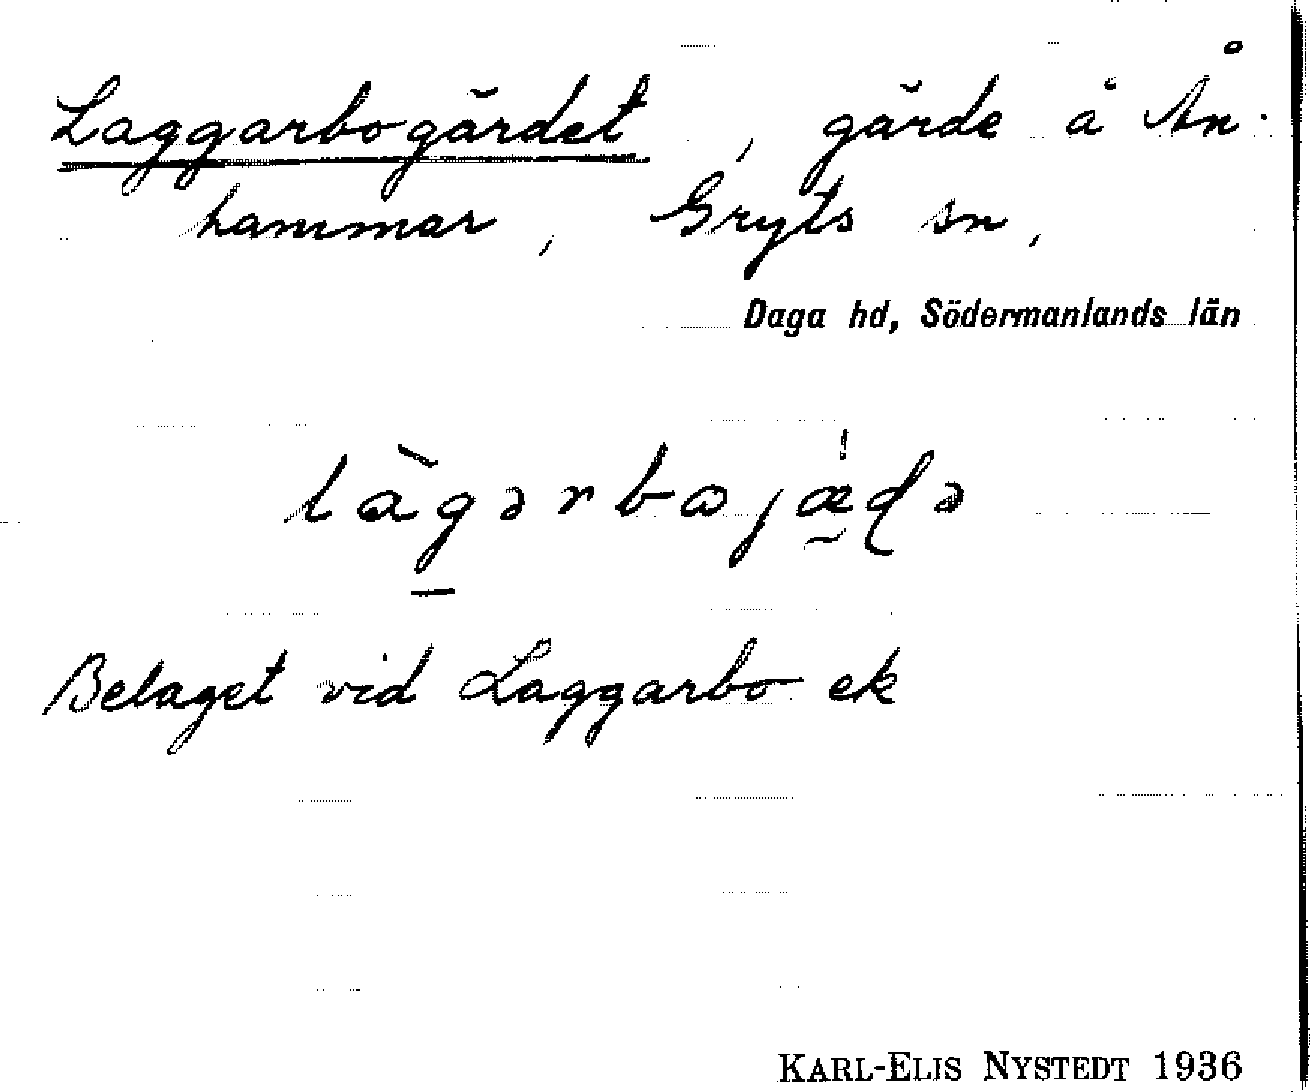 Laggarbogärdet, gärde å Ån-
hammar, Gryts sn,
Daga hd, Södermanlands län
làgərbωjæ̰̍ɖə
Belaget vid Laggarbo ek
KARL-ELIS NYSTEDT 1936